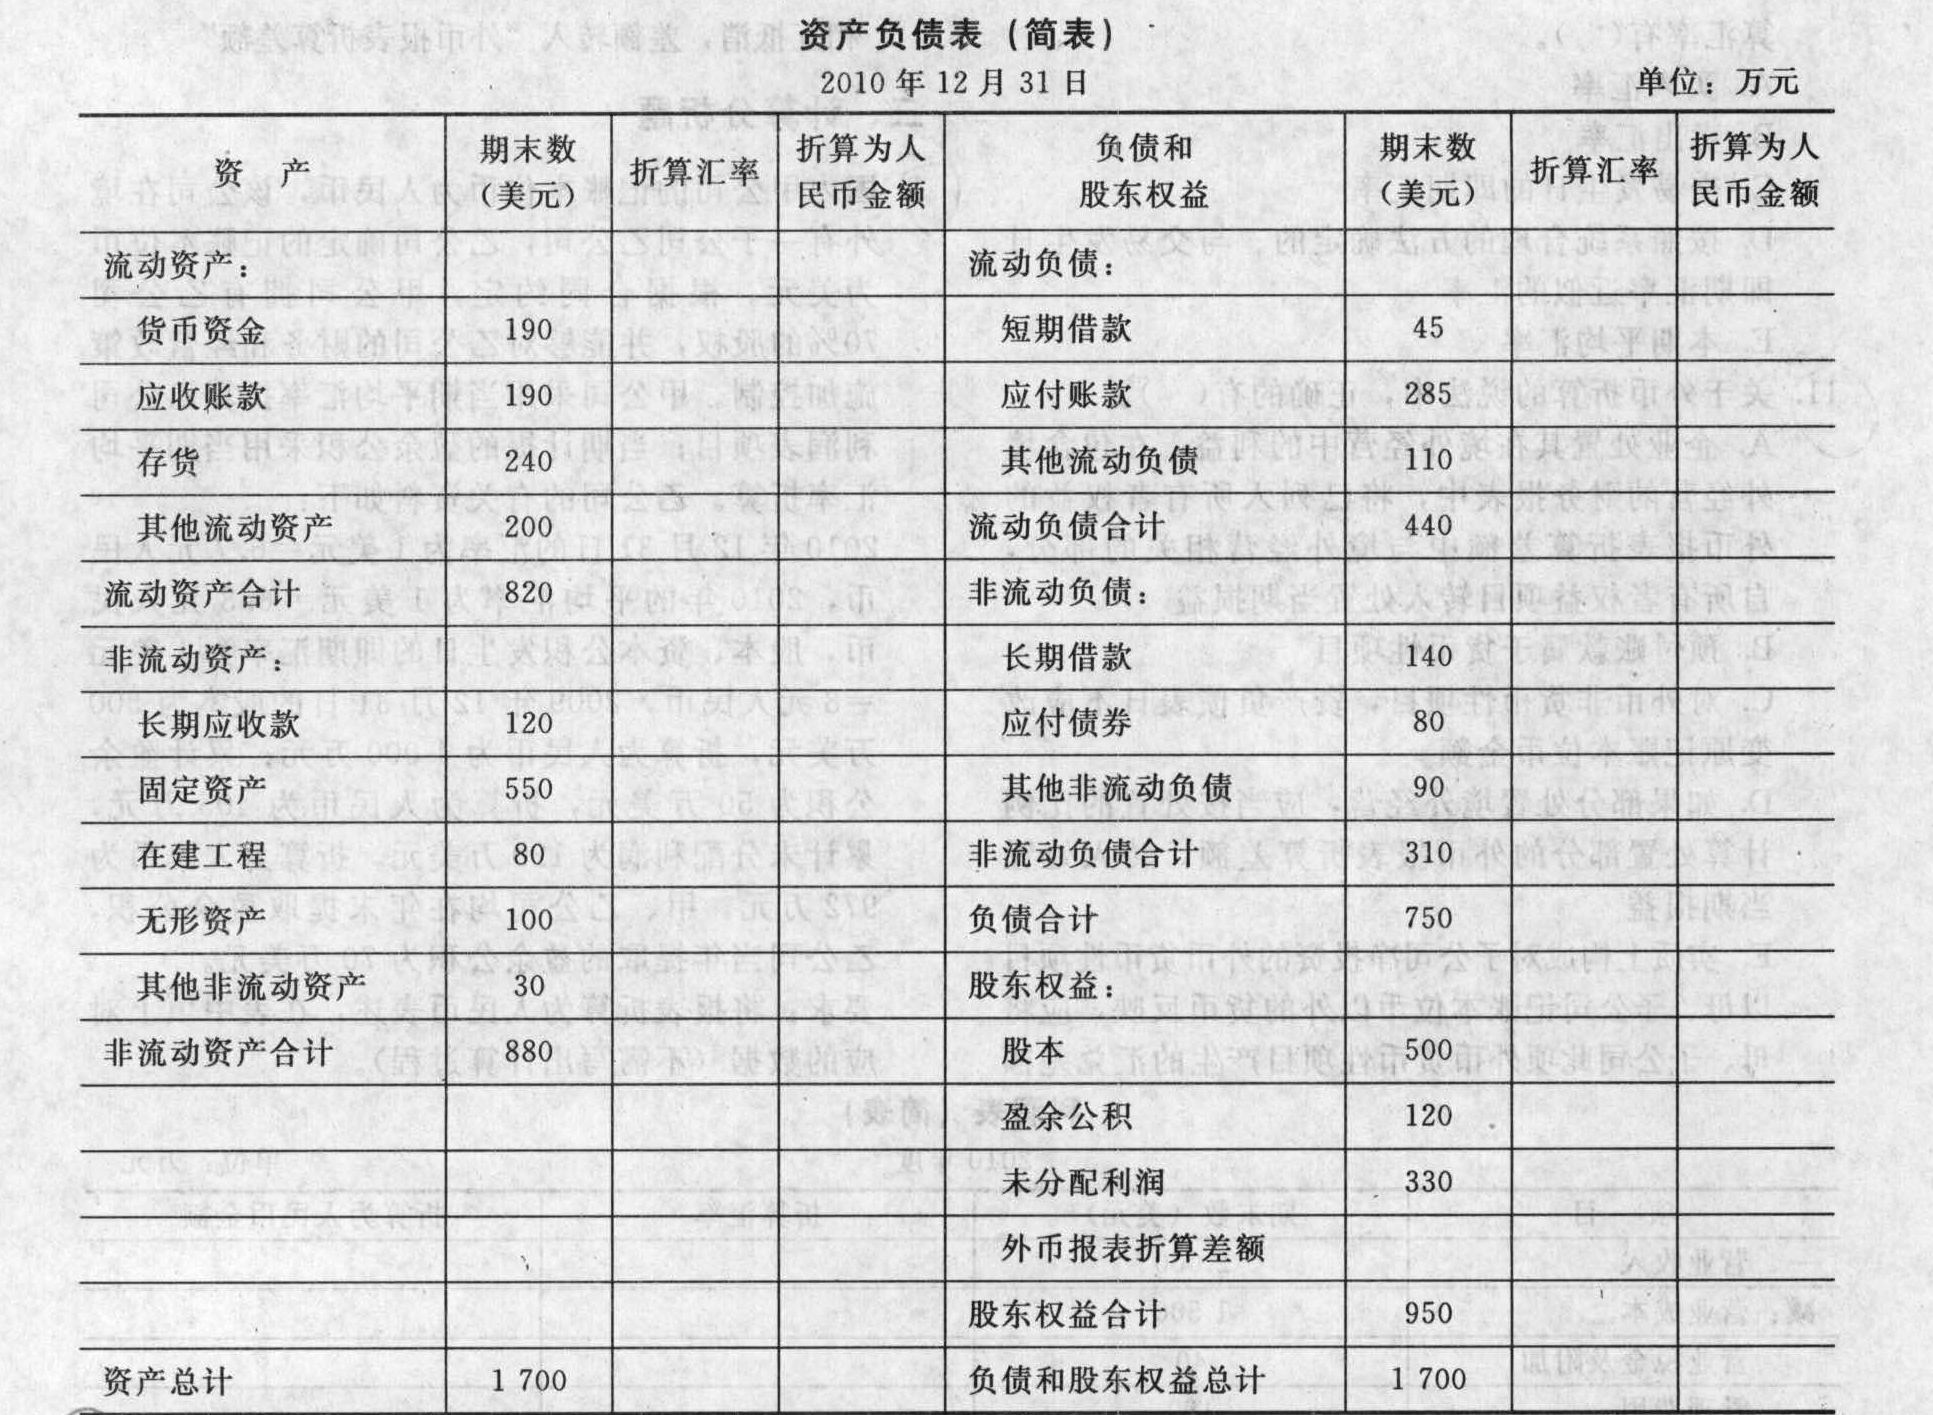 资产负债表（简表）
2010 年 12 月 31 日 单位：万元
资 产 期末数（美元） 折算汇率 折算为人民币金额 负债和股东权益 期末数（美元） 折算汇率 折算为人民币金额
流动资产： 流动负债：
货币资金 190 短期借款 45
应收账款 190 应付账款 285
存货 240 其他流动负债 110
其他流动资产 200 流动负债合计 440
流动资产合计 820 非流动负债：
非流动资产： 长期借款 140
长期应收款 120 应付债券 80
固定资产 550 其他非流动负债 90
在建工程 80 非流动负债合计 310
无形资产 100 负债合计 750
其他非流动资产 30 股东权益：
非流动资产合计 880 股本 500
盈余公积 120
未分配利润 330
外币报表折算差额
股东权益合计 950
资产总计 1 700 负债和股东权益总计 1 700